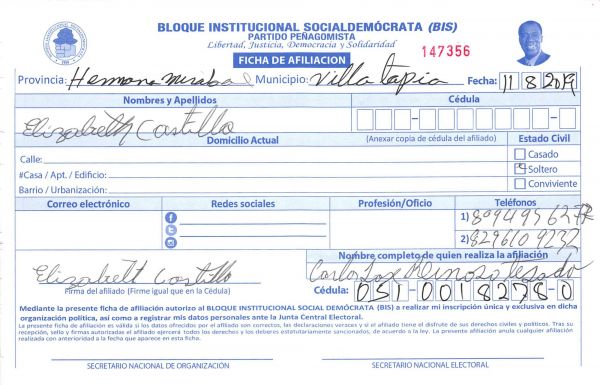 BLOQUE INSTITUCIONAL SOCIALDEMÓCRATA (BIS)
PARTIDO PEÑAGOMISTA
Libertad, Justicia, Democracia y Solidaridad
FICHA DE AFILIACION
147356
Provincia: Hermana Mirabal Municipio: Villa Tapia Fecha: 11 8 2019
Nombres y Apellidos Cédula
Elizabeth Castillo
Domicilio Actual (Anexar copia de cédula del afiliado) Estado Civil
Calle: Casado
#Casa / Apt. / Edificio: Soltero
Barrio / Urbanización: Conviviente
Correo electrónico Redes sociales Profesión/Oficio Teléfonos
1) 809495627
2) 829610 9232
Nombre completo de quien realiza la afiliación
Elizabelt Castillo Carlos Jose
Firma del afiliado (Firme igual que en la Cédula) Cédula: 051-0018278-0
Mediante la presente ficha de afiliación autorizo al BLOQUE INSTITUCIONAL SOCIAL DEMÓCRATA (BIS) a realizar mi inscripción única y exclusiva en dicha
organización política, así como a registrar mis datos personales ante la Junta Central Electoral.
La presente ficha de afiliación es válida si los datos ofrecidos por el afiliado son correctos, las declaraciones veraces y si el afiliado tiene el disfrute de sus derechos civiles y políticos. Tras su
recepción, sello y firmas autorizadas el afiliado ejercerá todos los derechos y los deberes estatutariamente sancionados, de acuerdo a la ley. La presente afiliación anula cualquier afiliación
realizada con anterioridad a la fecha que aparece en esta ficha.
SECRETARIO NACIONAL DE ORGANIZACIÓN SECRETARIO NACIONAL ELECTORAL